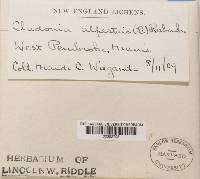 NEW ENGLAND LICHENS.
Cladonia alpestris (L.) Rabenh.
West Pembroke, Maine
Coll. Maude C. Wiegand. 8/11/09
HERBARIUM OF
LINCOLN W. RIDDLE
FARLOW HERBARIUM
HARVARD
UNIVERSITY